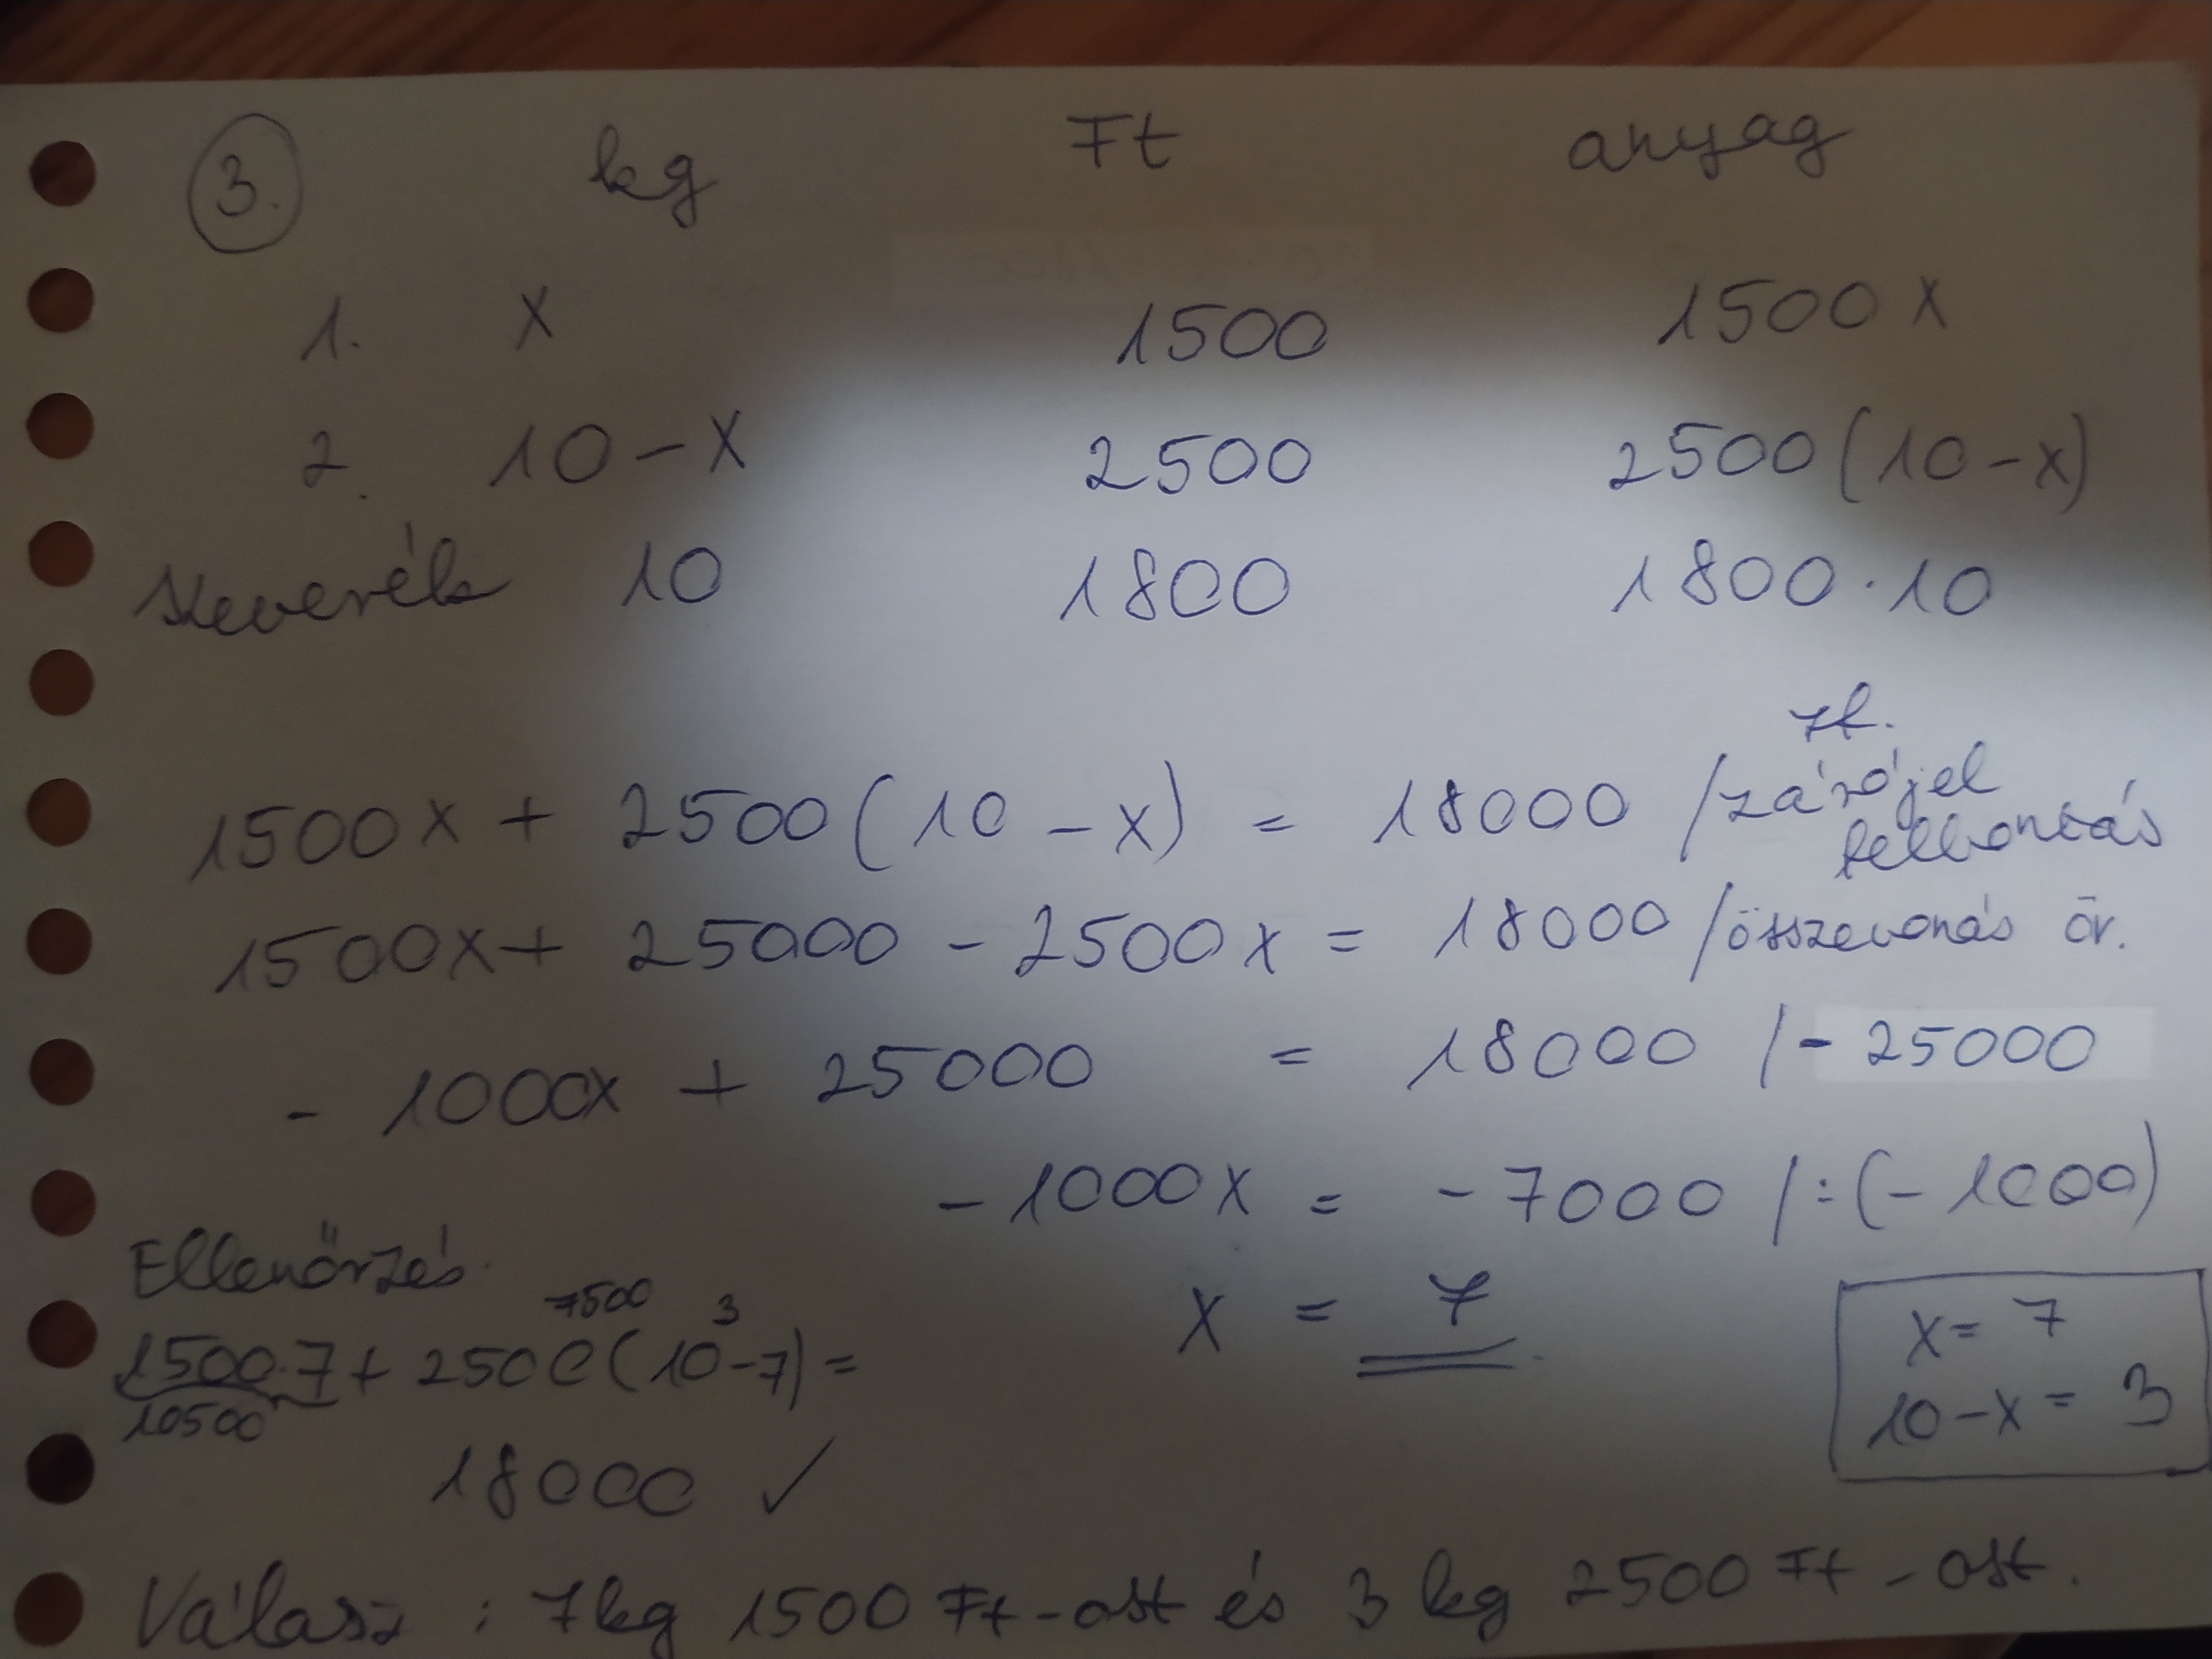 3. kg Ft anyag
1. x 1500 1500x
2. 10-x 2500 2500(10-x)
Keverék 10 1800 1800·10
zf.
1500x + 2500(10-x) = 18000 /zárójel
felbontás
1500x + 25000 - 2500x = 18000 /összevonás öv.
- 1000x + 25000 = 18000 /- 25000
- 1000x = - 7000 /:(-1000)
Ellenőrzés
x = 7
x = 7
10-x = 3
7500 3
1500·7 + 2500(10-7) =
10500
18000 ✓
Válasz : 7kg 1500 Ft-ost és 3 kg 2500 Ft-ost.